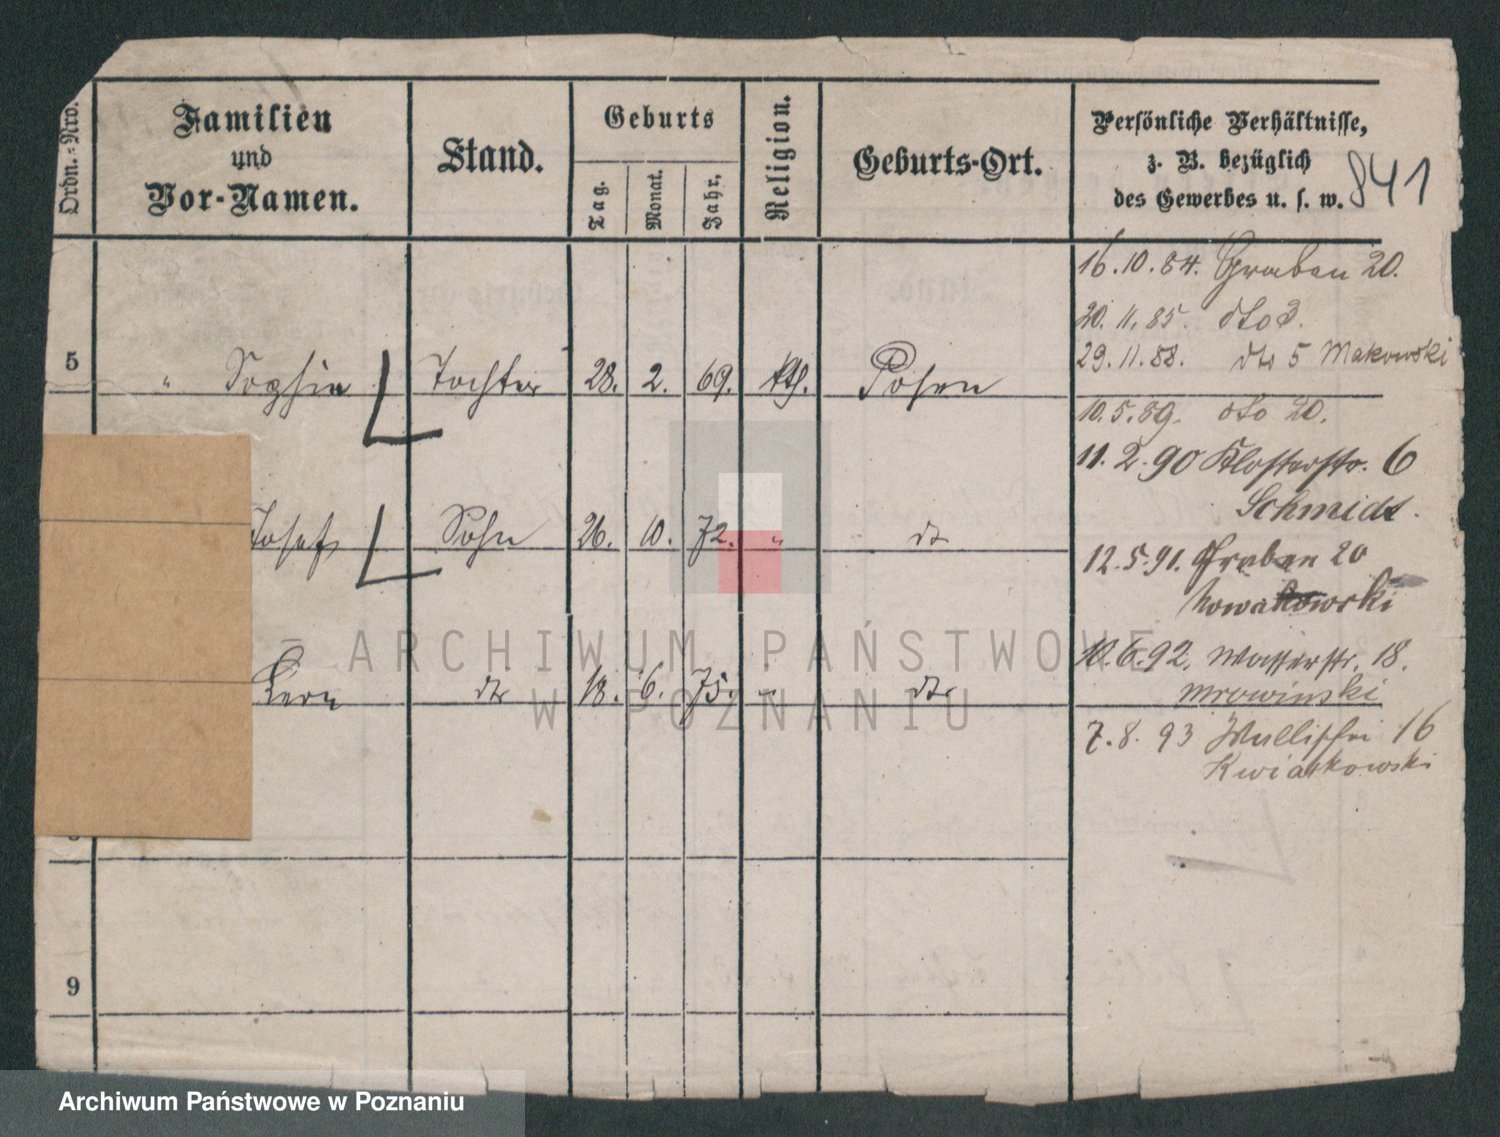 Ordn.-Nro.
Familien
und
Vor-Namen.
Stand.
Geburts
Tag.
Monat.
Jahr.
Religion.
Geburts-Ort.
Persönliche Verhältnisse,
z. B. bezüglich
des Gewerbes u. s. w.
841
16.10.84. Graben 20.
20.11.85. dto 3.
29.11.88. dto 5 Makowski
5 " Sophie Tochter 28. 2. 69. kth. Posen
10.5.89. dto 20.
11.2.90 Klosterstr. 6
Schmidt.
Josef Sohn 26. 10. 72. " dto
12.5.91. Graben 20
Nowakowski
10.6.92. Wasserstr. 18.
Mrowinski
dto 18. 6. 75. " dto
7.8.93 Wallischei 16
Kwiatkowski
9
ARCHIWUM PAŃSTWOWE
W POZNANIU
Archiwum Państwowe w Poznaniu